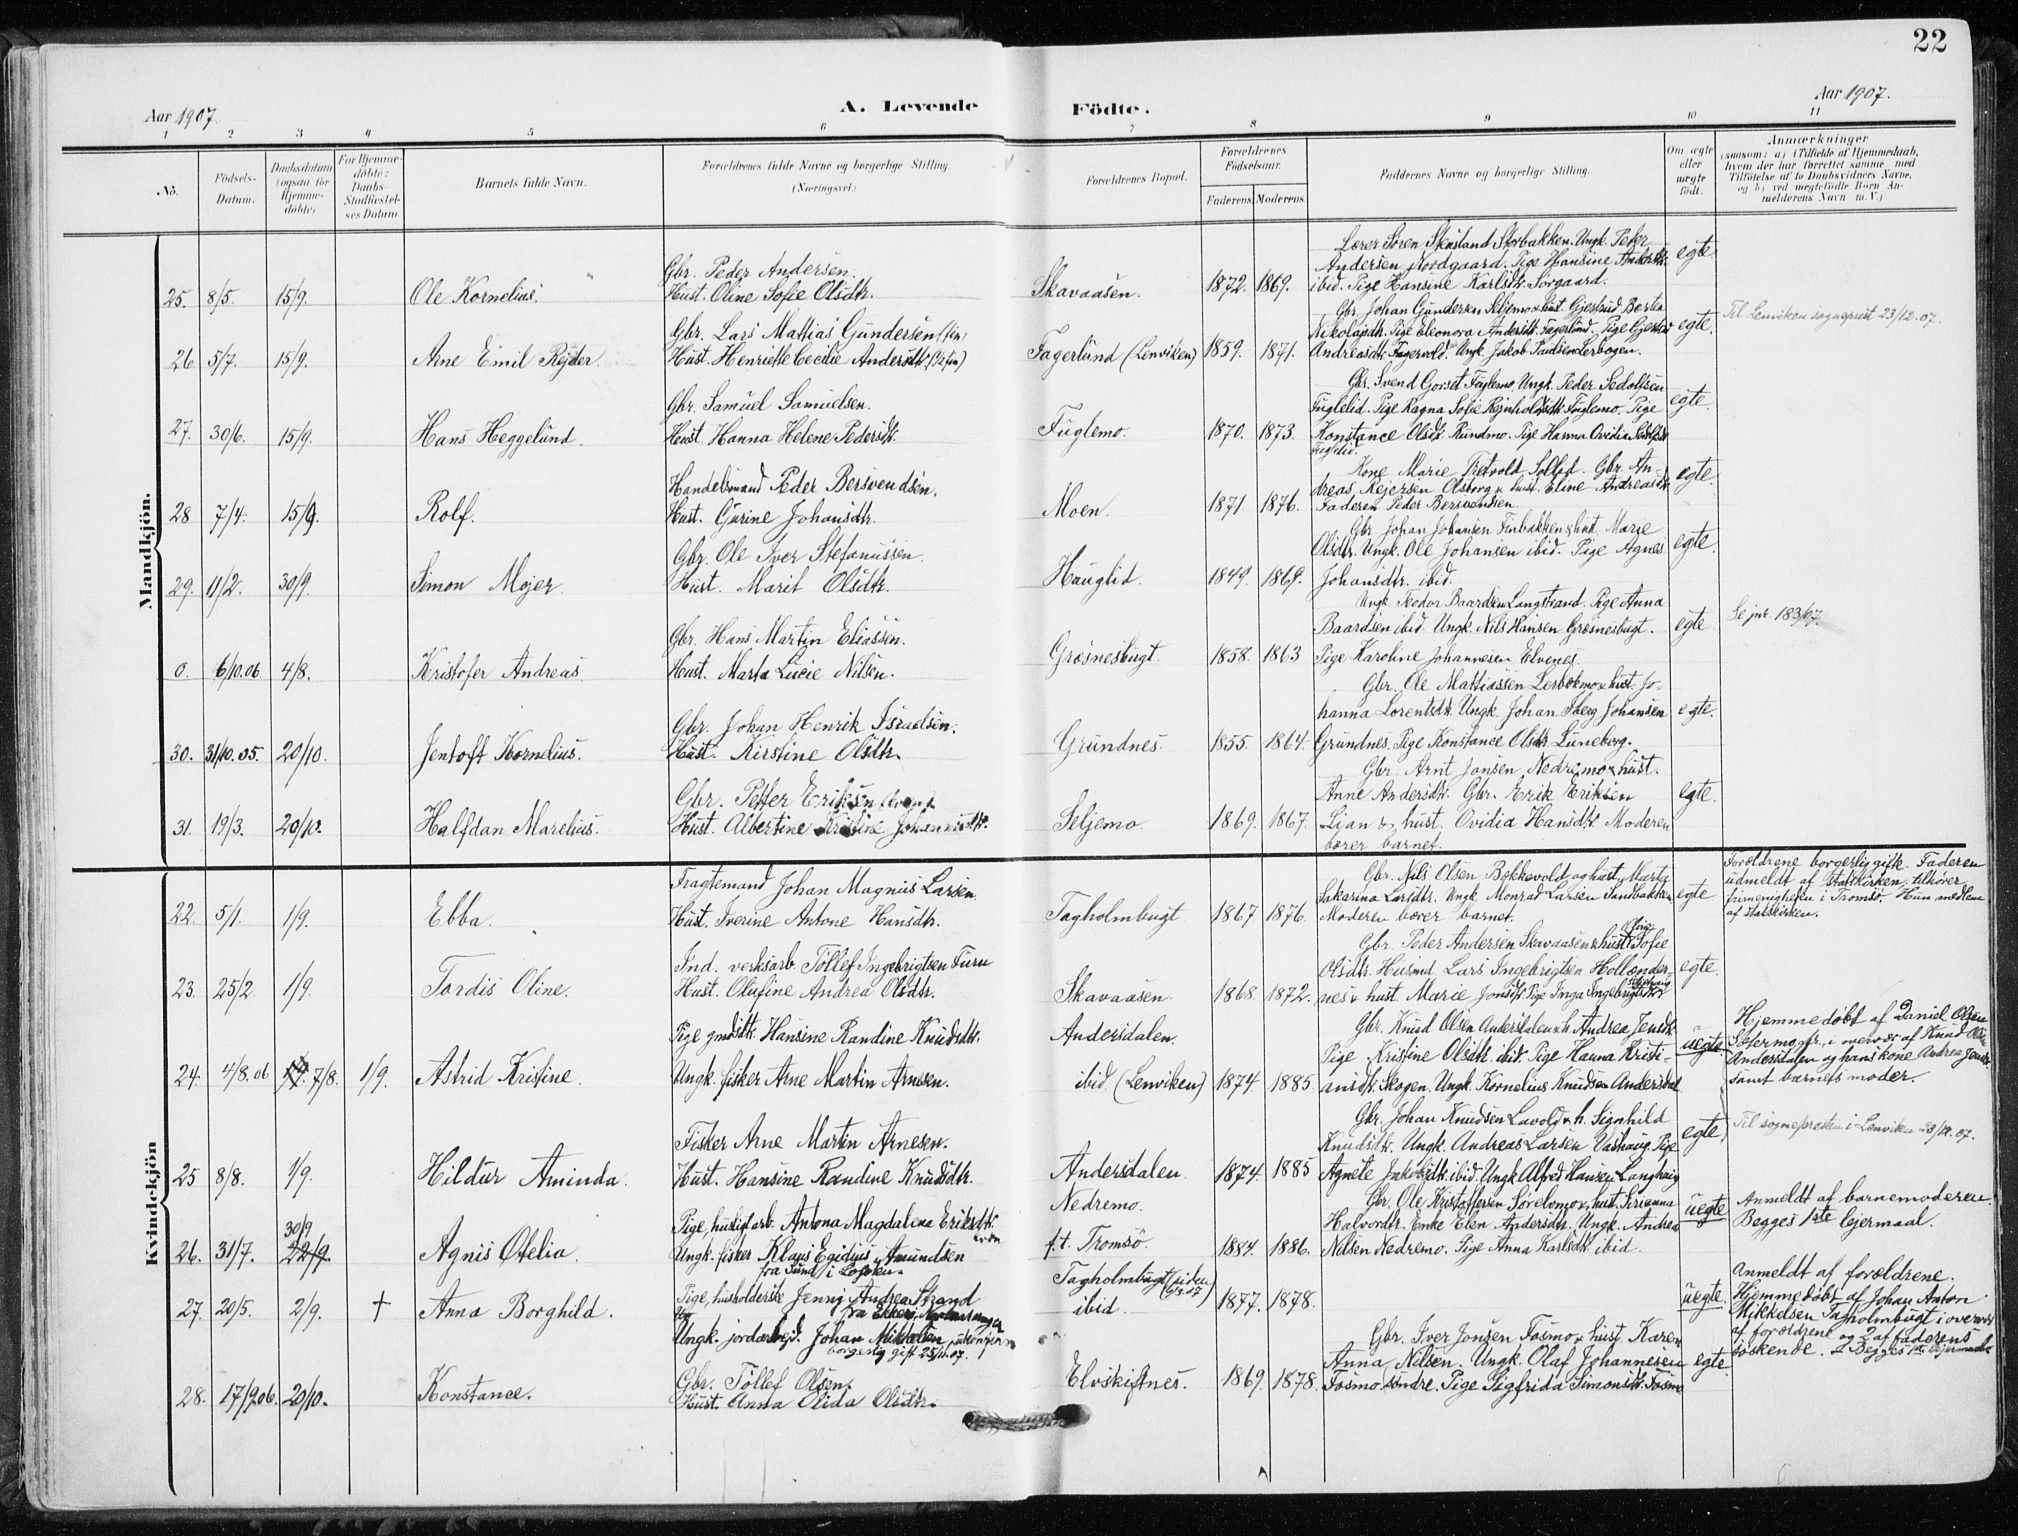 22
Aar 1907.
A. Levende
Födte.
Aar 1907.
1 2 3 4 5 6 7 8 9 10 11
No.
Födsels-
Datum.
Daabsdatum
(ogsaa for
Hjemme-
döbte)
For Hjemme-
döbte:
Daabs-
Stadfæstel-
ses Datum
Barnets fulde Navn.
Forældrenes fulde Navne og borgerlige Stilling.
(Næringsvei.)
Forældrenes Bopæl.
Forældrenes
Födselsaar.
Faderens. Moderens.
Faddernes Navne og borgerlige Stilling.
Om ægte
eller
uægte
födt.
Anmærkninger
(saasom: a) i Tilfælde af Hjemmedaab,
hvem der har forrettet samme, med
Tilföielse af to Daabsvidners Navne,
og b) ved uegtefödte Börn An-
melderens Navn m. V.)
Mandkjön.
25. 8/5. 15/9. Ole Kornelius.
Gbr. Peder Andersen.
Hust. Oline Sofie Olsdtr.
Skavaasen. 1872. 1869.
Lærer Sören Stensland Storbakken. Ungk. Peder
Andersen Nordgaard. Pige Hansine Andersdtr.
ibid. Pige Hansine Karlsdtr. Sörgaard.
egte.
26. 5/7. 15/9. Arne Emil Rejder.
Gbr. Lars Mattias Gundersen (fin)
Hust. Henriette Cecilie Andersdtr. (1/2 fin)
Fagerlund (Lenviken) 1859. 1871.
Gbr. Johan Gundersen Seljemo & hust. Gjertrud Berta
Nikolaidtr. Pige Eleonora Andersdtr. Fagerlund. Pige
Andreasdtr. Fagervold. Ungk. Jakob Paulsen Lerbogen.
egte.
Til Lenviken sogneprest 23/12.07.
27. 30/6. 15/9. Hans Heggelund.
Gbr. Samuel Samuelsen.
Hust. Hanna Helene Pedersdtr.
Fuglemo. 1870. 1873.
Gbr. Svend Gorset Fuglemo. Ungk. Peder Sedolfsen
Fuglelid. Pige Ragna Sofie Rejnholdsdtr. Fuglemo. Pige
Konstance Olsdtr. Rundmo. Pige Hanna Ovidia
Fuglelid.
egte.
28 7/4. 15/9. Rolf.
Handelsmand Peder Bersvendsen.
Hust. Gurine Johansdtr.
Moen. 1871. 1876.
Kone Marie Tretvold Sollid. Gbr. An-
dreas Rejersen Olsborg & hust. Eline Andreasdtr.
Faderen Peder Bersvendsen.
egte.
29. 11/2. 30/9. Simon Mejer.
Gbr. Ole Iver Stefanussen.
Hust. Marit Olsdtr.
Hauglid. 1849. 1869.
Gbr. Johan Johansen Finbakken & hust. Marie
Olsdtr. Ungk. Ole Johansen ibid. Pige Agnes
Johansdtr. ibid.
egte.
0. 6/10.06 4/8. Kristofer Andreas.
Gbr. Hans Martin Eliassen.
Hust. Marta Lucie Nilsen.
Græsnesbugt. 1858. 1863
Ungk. Teodor Baardsen Langstrand. Pige Anna
Baardsen ibid. Ungk. Nils Hansen Græsnesbugt.
Pige Karoline Johannesen Elvenes.
egte.
Se jnr. 183/07.
30. 31/10.05. 20/10. Jentoft Kornelius.
Gbr. Johan Henrik Israelsen.
Hust. Kirstine Olsdtr.
Grundnes. 1855. 1864.
Gbr. Ole Mattiassen Lerbækmo & hust. Jo-
hanna Lorentsdtr. Ungk. Johan Iberg Johansen
Grundnes. Pige Konstance Olsdtr. Luneborg.
egte.
31. 19/3. 20/10. Halfdan Marelius.
Gbr. Petter Eriksen (kvæn)
Hust. Albertine Kristine Johannesdtr.
Seljemo. 1869. 1867.
Gbr. Arnt Jonsen Nedremo & hust.
Anne Andersdtr. Gbr. Erik Eriksen
Lian & hust. Ovidia Hansdtr. Moderen
bærer barnet.
egte.
Kvindekjön
22. 5/1. 1/9. Ebba.
Fragtemand Johan Magnus Larsen.
Hust. Iverine Antone Hansdtr.
Tagholmbugt 1867 1876.
Gbr. Nils Olsen Bækkevold, og hust. Marta
Sakarina Larsdtr. Ungk. Monrad Larsen Sandbakken.
Moderen bærer barnet.
egte
Forældrene borgerlig gifte. Faderen
udmeldt af statskirken. tilhører
frimenigheden i Tromsö. Hun medlem
af statskirken.
23. 25/2 1/9. Tordis Oline.
Ind. verksarb. Töllef Ingebrigtsen Furu
Hust. Olufine Andrea Olsdtr.
Skavaasen. 1868. 1872.
Gbr. Peder Andersen Skavaasen & hust. Oline Sofie
Olsdtr. Husmd. Lars Ingebrigtsen Hollænder-
nes & hust. Marie Jonsdtr. Pige Inga Ingebrigtsdtr.
egte.
24. 4/8.06 7/8. 1/9. Astrid Kristine.
Pige gmdsdtr. Hansine Randine Knudsdtr.
Ungk. fisker Arne Martin Arnesen.
Andersdalen.
ibid. (Lenviken) 1874. 1885.
Gbr. Knud Olsen Andersdalen & h. Andrea Jensdtr.
Pige Kristine Olsdtr. ibid. Pige Hanna Kristi-
ansdtr. Skogen. Ungk. Kornelius Knudsen Andersdal
uegte
Hjemmedöbt af Daniel Olsen
Sætermo, fr., i overvær af Knud Olsen
Andersdalen og hans kone Andrea Jensdtr.
samt barnets moder.
25 8/8. 1/9. Hildur Aminda.
Fisker Arne Martin Arnesen.
Hust. Hansine Randine Knudsdtr.
Andersdalen 1874. 1885
Gbr. Johan Knudsen Lavold & h. Signhild
Knudsdtr. Ungk. Andreas Larsen Vashaug. Pige
Agnete Jakobsdtr. ibid. Ungk. Alfred Hansen Langhaug
egte
Til sogneprosten i Lenviken 23/12.07.
26. 31/7. 30/9 22/9. Agnis Otelia.
Pige, husligt arb. Antona Magdalena Eriksdtr.
kvæn
Ungk. fisker Klaus Egidius Amundsen
fra Sund i Lofoten.
Nedremo.
f.t. Tromsö. 1884. 1886.
Gbr. Ole Kristoffersen Sörelvmo & hust. Serianna
Halvordtr. Enke Elen Andersdtr. Ungk. Andreas
Nilsen Nedremo. Pige Anna Karlsdtr. ibid.
uegte
Anmeldt af barnemoderen.
Begges 1ste lejermaal.
27. 20/5. 2/9. † Anna Borghild.
Pige, husholderske Jenny Andrea Strand
Ungk. jordarbejd. Johan Mikkelsen
borgerlig gift 25/11.07.
Tagholmbugt (siden
ibid. 1877. 1878.
uegte.
Anmeldt af forældrene.
Hjemmedöbt af Johan Anton
Mikkelsen Tagholmbugt i overvær
af forældrene og 2 af faderens
söskende. Begges 1ste lejermaal
28. 17/9.06. 20/10. Konstance.
Gbr. Töllef Olsen.
Hust. Anna Olida Olsdtr.
Elvskiftnes. 1869. 1878.
Gbr. Iver Jonsen Fosmo & hust. Karen
Anna Nilsen. Ungk. Olaf Johannesen
Fosmo söndre. Pige Sigfrida Simonsdtr. Fosmo
egte.